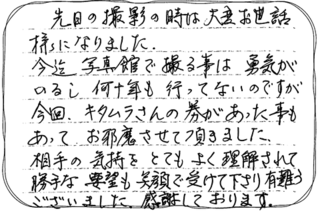 先日の撮影の時は大変お世話
様になりました。
今迄写真館で撮る事は勇気が
いるし何十年も行ってないのですが
今回、キタムラさんの券があった事も
あってお邪魔させて頂きました。
相手の気持をとてもよく理解されて
勝手な要望も笑顔で受けて下さり有難う
ございました。感謝しております。